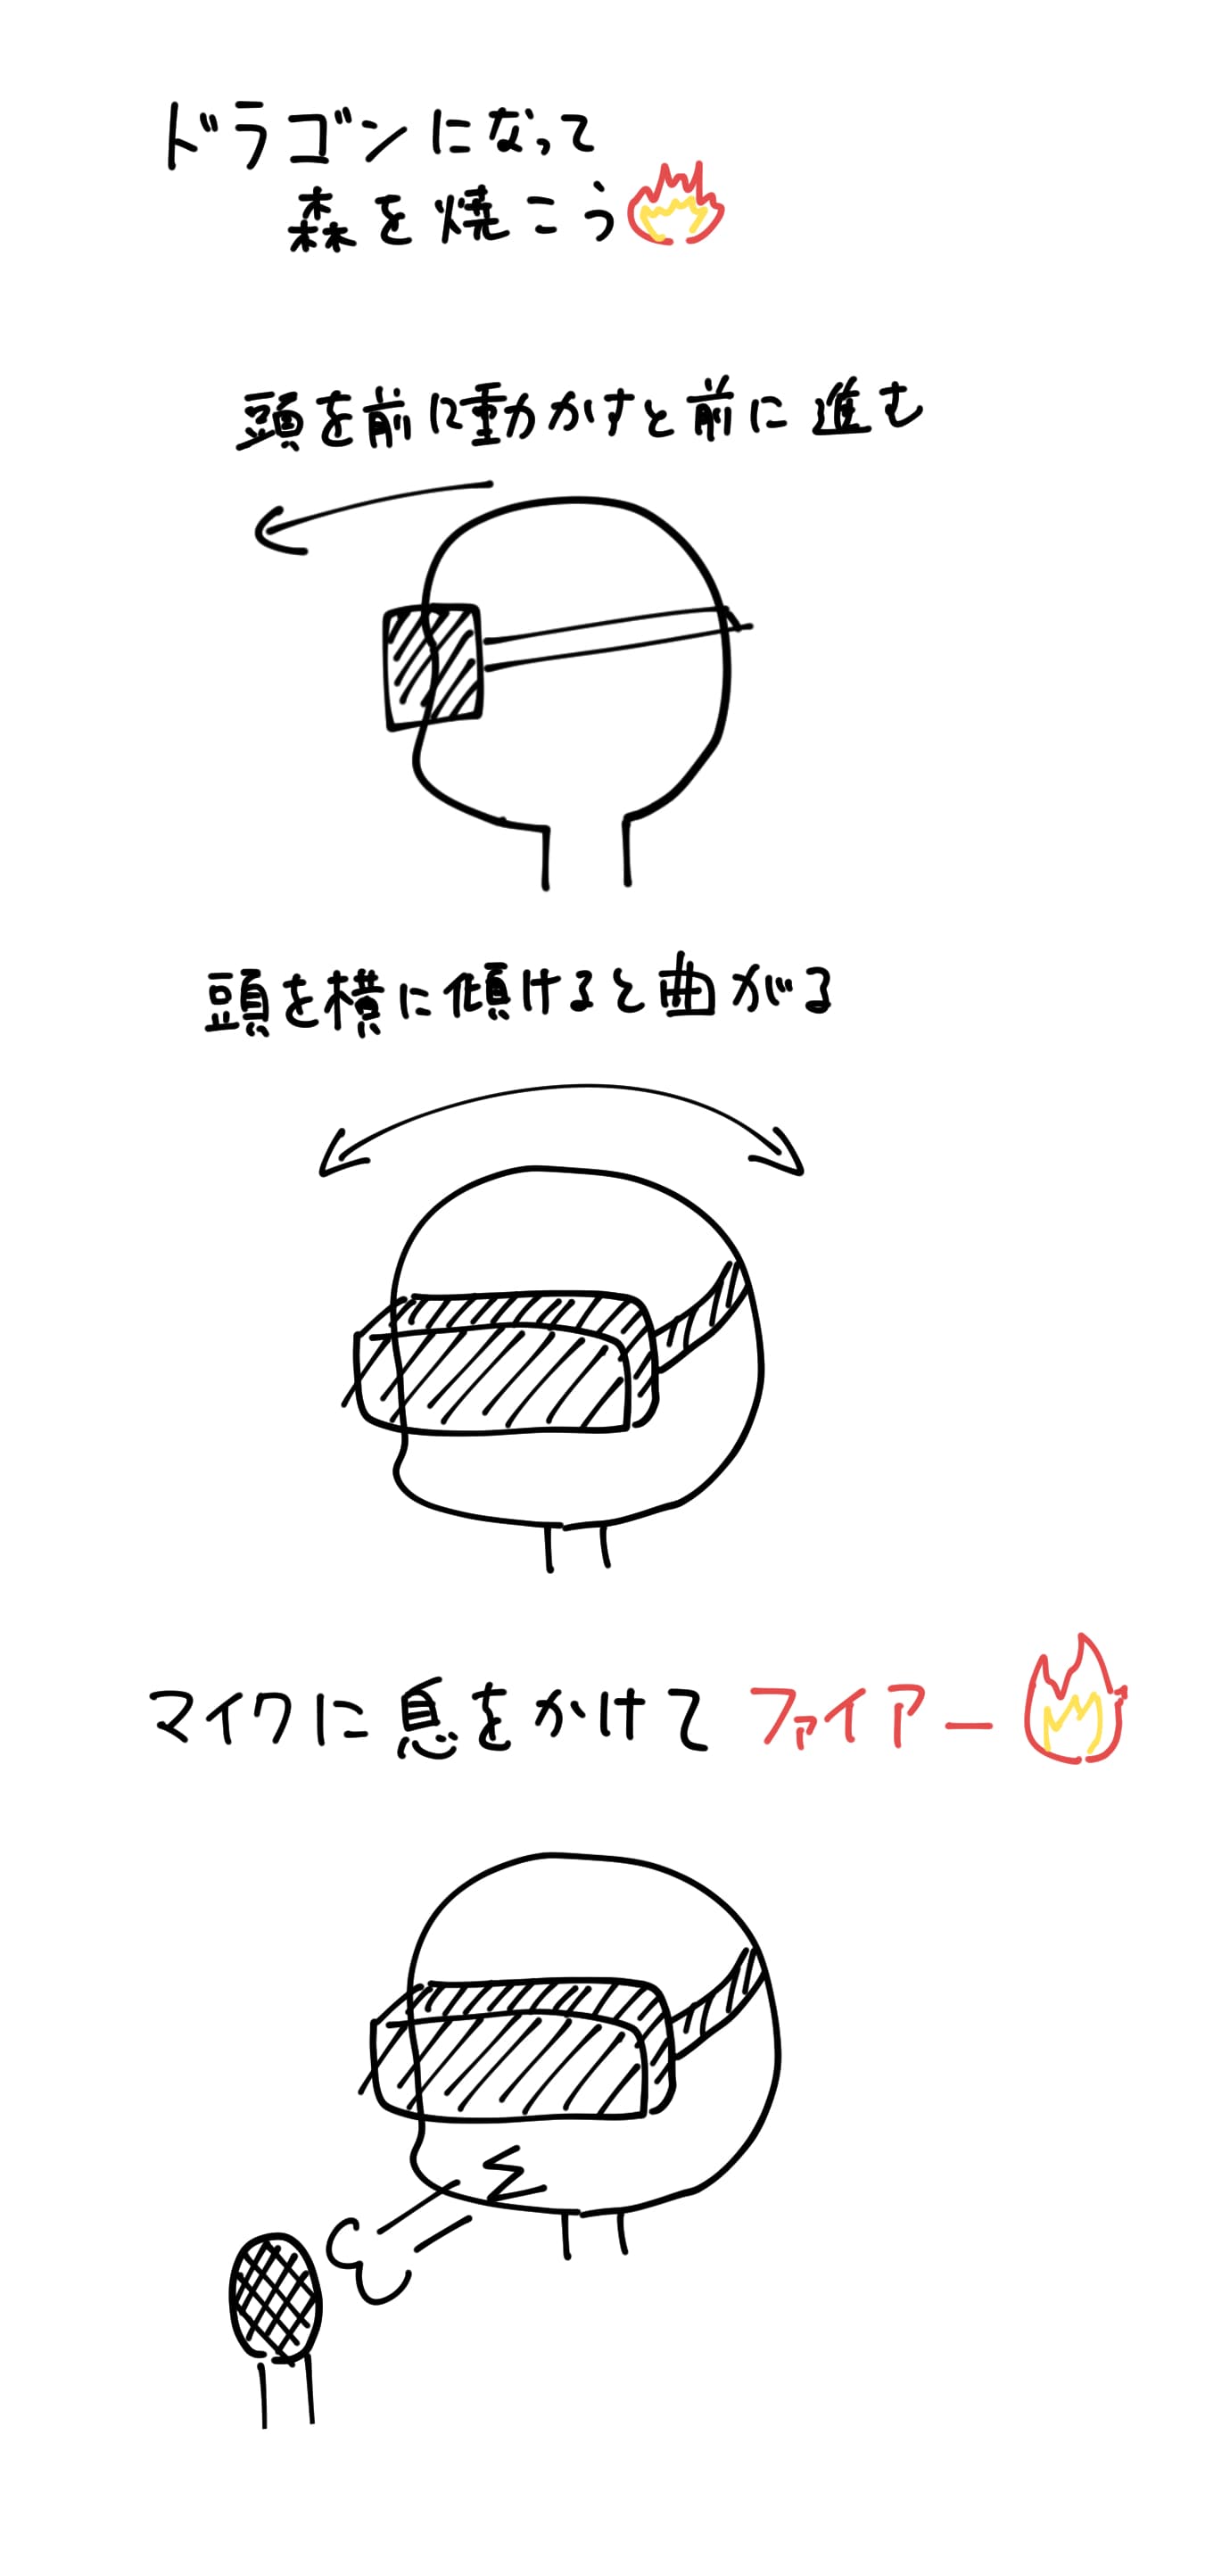 ドラゴンになって
森を焼こう
頭を前に動かすと前に進む
頭を横に傾けると曲がる
マイクに息をかけてファイアー